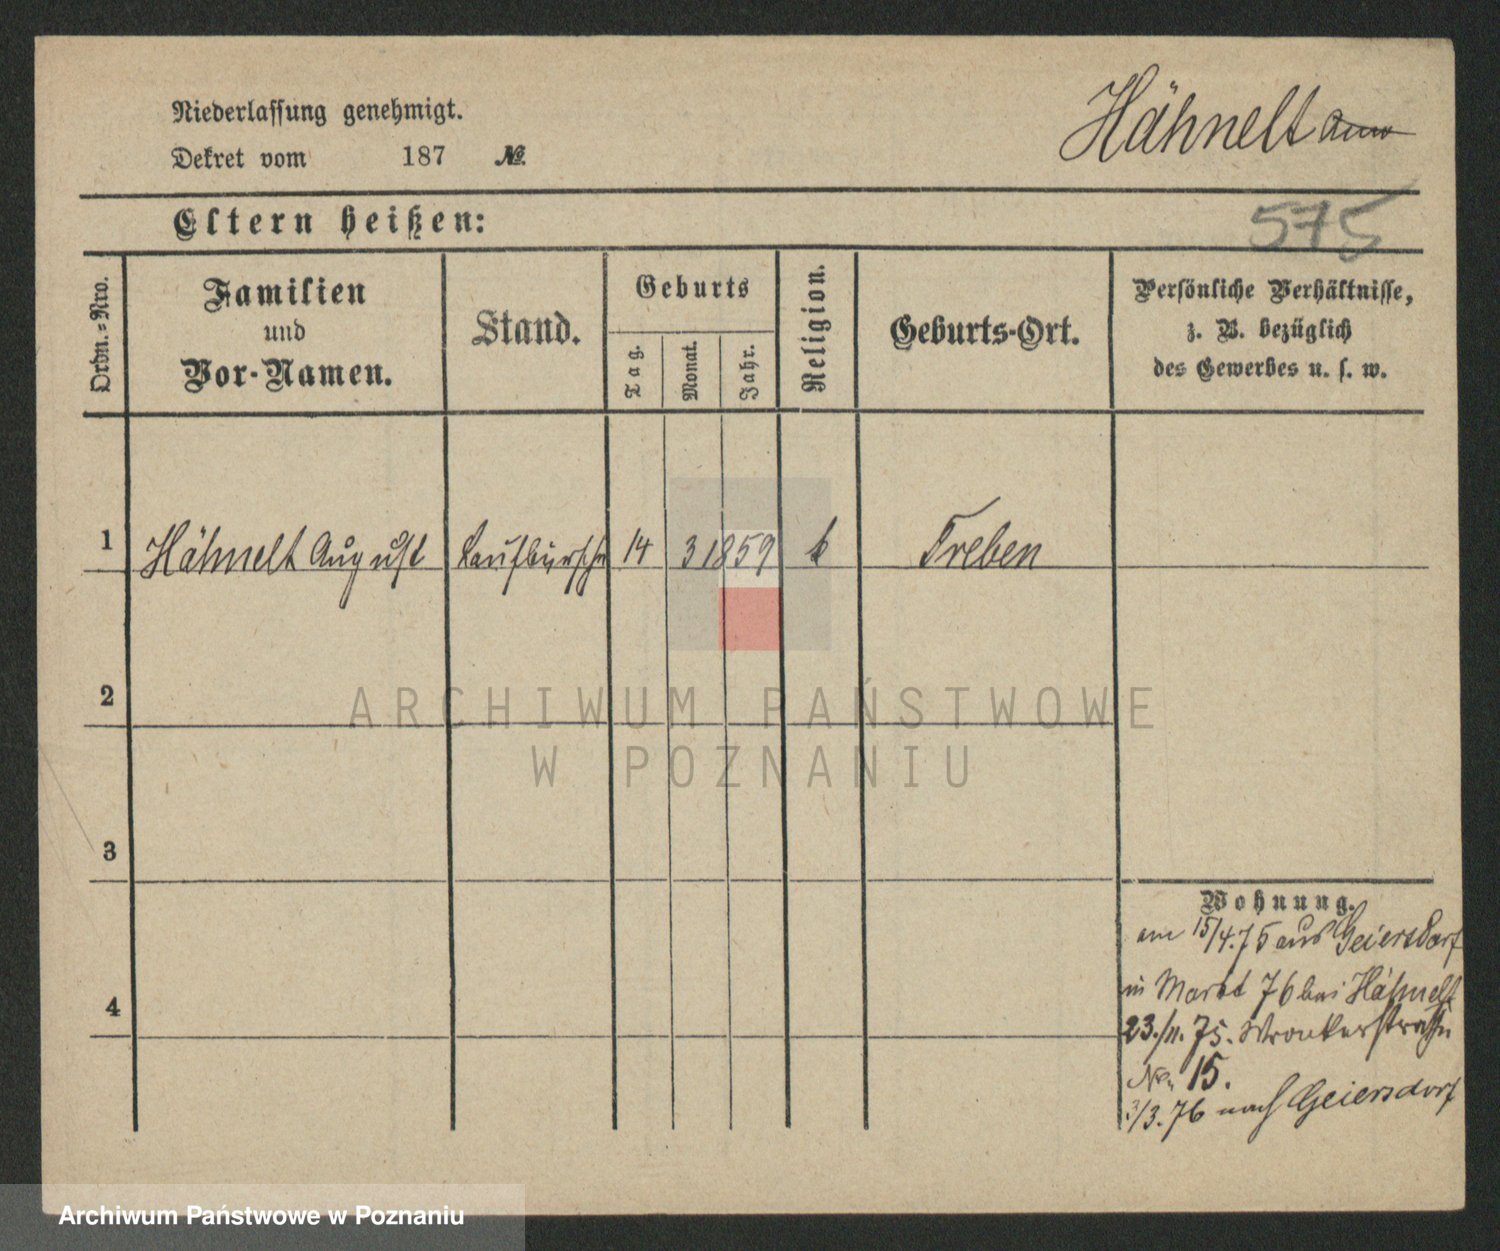 Niederlassung genehmigt.
Hähnelt
Dekret vom 187 №
Eltern heißen:
575
Ordn.=Nro.
Familien
und
Vor-Namen.
Stand.
Geburts
Tag.
Monat.
Jahr.
Religion.
Geburts-Ort.
Persönliche Verhältnisse,
z. B. bezüglich
des Gewerbes u. s. w.
1 Hähnelt August Laufbursche 14 3 1859 k Treben
2
3
4
Wohnung.
am 15/4.75 aus Geiersdorf
in Markt 76 bei Hähnelt
23./11.75. Wronkerstraße
No 15.
3/3.76 nach Geiersdorf
ARCHIWUM PAŃSTWOWE
W POZNANIU
Archiwum Państwowe w Poznaniu